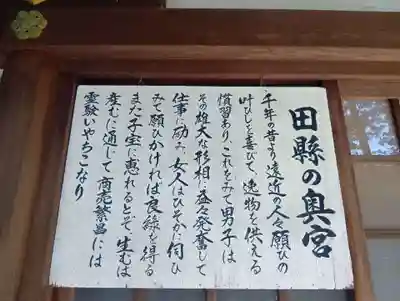 田縣の奥宮
千年の昔より遠近の人々願ひの
叶ひしを喜びて、連物を供える
慣習あり、これをみて男子は
その雄大な形相に益々発奮して
仕事に励み、女人はひそかに伺ひ
みて願ひかければ良縁を得る
また子宝に恵れるとぞ、生むは
産むに通じて商売繁昌には
霊験いやちこなり